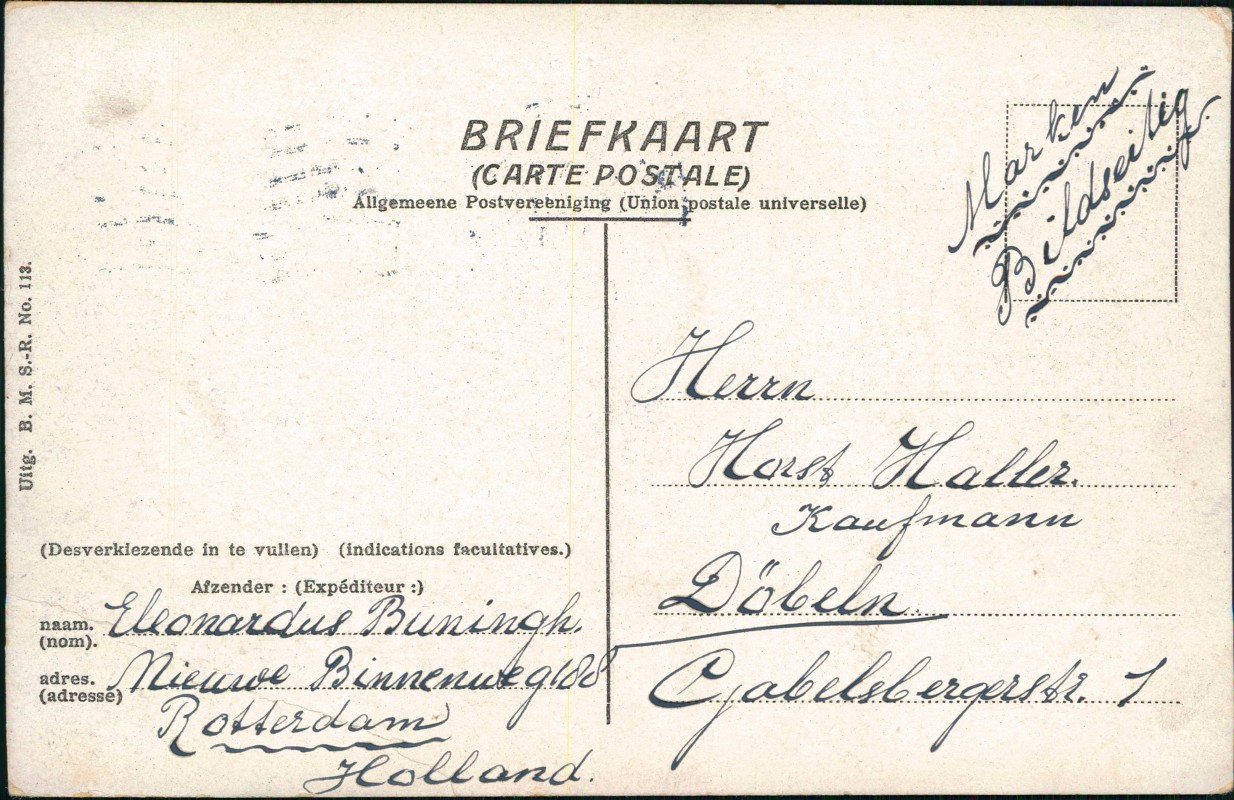 BRIEFKAART
(CARTE POSTALE)
Allgemeene Postvereeniging (Union postale universelle)
Marken
Bildseitig
Uitg. B. M. S.-R. No. 113.
Herrn
Horst Haller.
Kaufmann
Döbeln.
Gabelsbergerstr. 1
(Desverkiezende in te vullen) (indications facultatives.)
Afzender : (Expéditeur :)
naam. Eleonardus Buningh.
(nom).
adres. Nieuwe Binnenweg 188
(adresse)
Rotterdam
Holland.